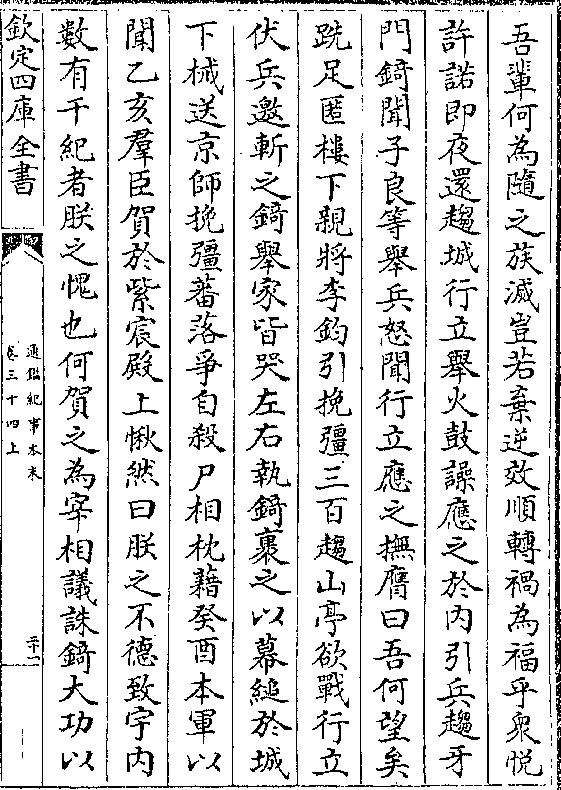 吾輩何為隨之族滅豈若棄逆效順轉禍為福乎衆悅
許諾即夜還趨城行立舉火鼓譟應之於內引兵趨牙
門錡聞子良等舉兵怒聞行立應之撫膺曰吾何望矣
跣足匿樓下親將李鈞引挽彊三百趨山亭欲戰行立
伏兵邀斬之錡舉家皆哭左右執錡裹之以幕縋於城
下械送京師挽彊蕃落爭自殺尸相枕藉癸酉本軍以
聞乙亥羣臣賀於紫宸殿上愀然曰朕之不德致宇內
數有干紀者朕之愧也何賀之為宰相議誅錡大功以
欽定四庫全書
通鑑紀事本末
卷三十四上
二十一